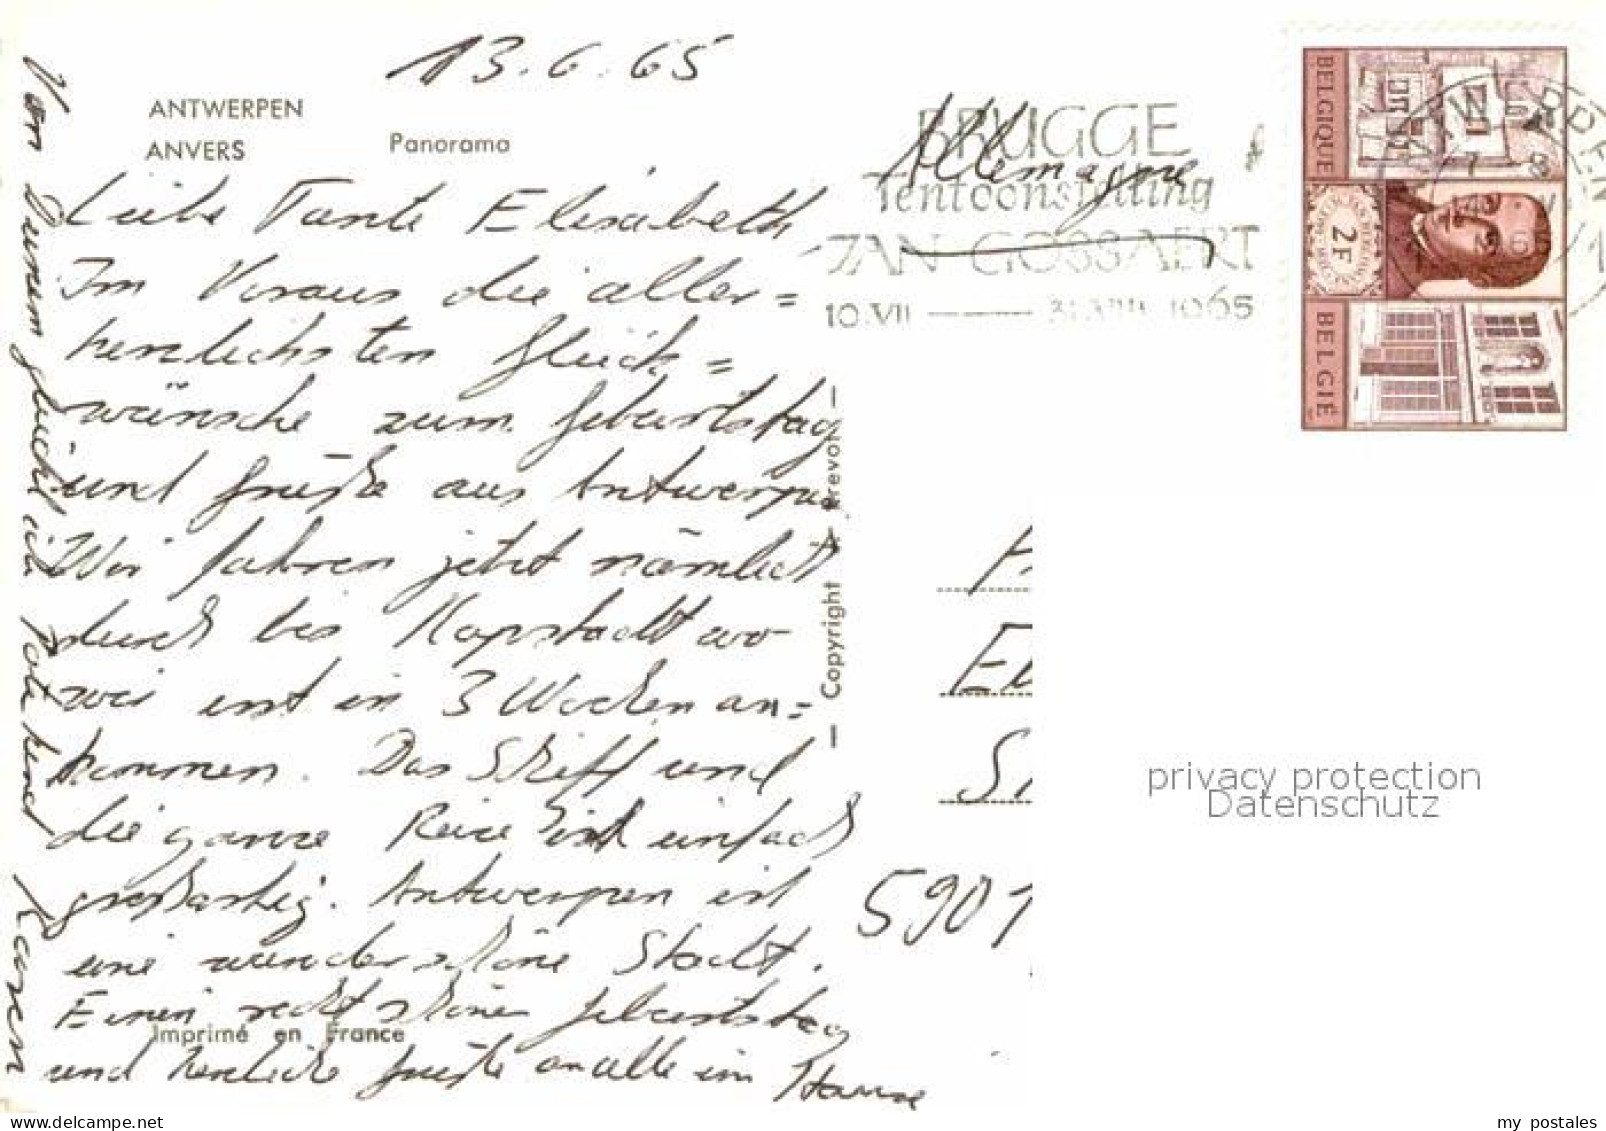 13.6.65
ANTWERPEN
ANVERS Panorama
Liebe Tante Elisabeth,
Im Voraus die aller=
herzlichsten Glück=
wünsche zum Geburtstag
und Grüße aus Antwerpen
Wir fahren jetzt nämlich
durch bis Kapstadt wo
wir erst in 3 Wochen an=
kommen. Das Schiff und
die ganze Reise ist einfach
großartig. Antwerpen ist
eine wunderschöne Stadt.
Einen recht schönen Geburtstag
und herzliche Grüße an alle im Hause
Von Deinem
Patenkind Karen
Imprimé en France
— Copyright
Allemagne
BRUGGE
Tentoonstelling
JAN GOSSAERT
10.VII — 31.VIII.1965
ANTWERPEN
BELGIQUE
2F
BELGIË
El
5901
privacy protection
Datenschutz
my postales